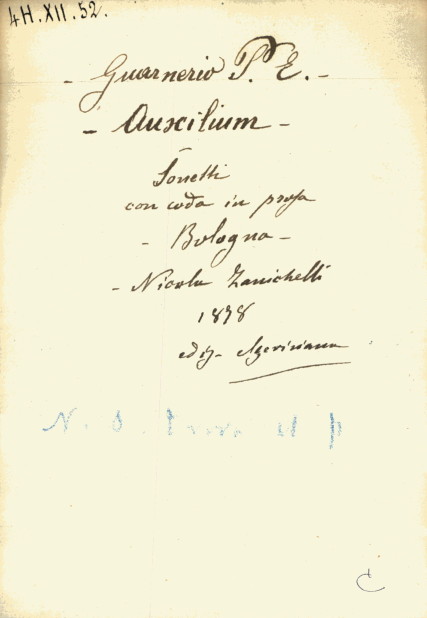 4H.XII.52.
- Guarnerio P. E. -
- Auxilium -
Sonetti
con coda in prosa
- Bologna -
- Nicola Zanichelli
1878
ediz. elzeviriana
N.
C